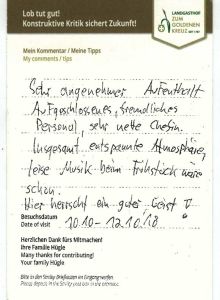 Lob tut gut!
Konstruktive Kritik sichert Zukunft!
LANDGASTHOF
ZUM
GOLDENEN
KREUZ
Mein Kommentar / Meine Tipps
My comments / tips
Sehr angenehmer Aufenthalt
Aufgeschlossenes, freundliches
Personal, sehr nette Chefin.
Insgesamt entspannte Atmosphäre,
leise Musik beim Frühstück wäre
schön.
Hier herrscht ein guter Geist
Besuchsdatum
Date of visit
10.10 - 12.10.18
Herzlichen Dank fürs Mitmachen!
Ihre Familie Hügle
Many thanks for contributing!
Your family Hügle
Bitte in den Smiley Briefkasten im Eingang werfen
Please deposit in the Smiley post box in the entrance